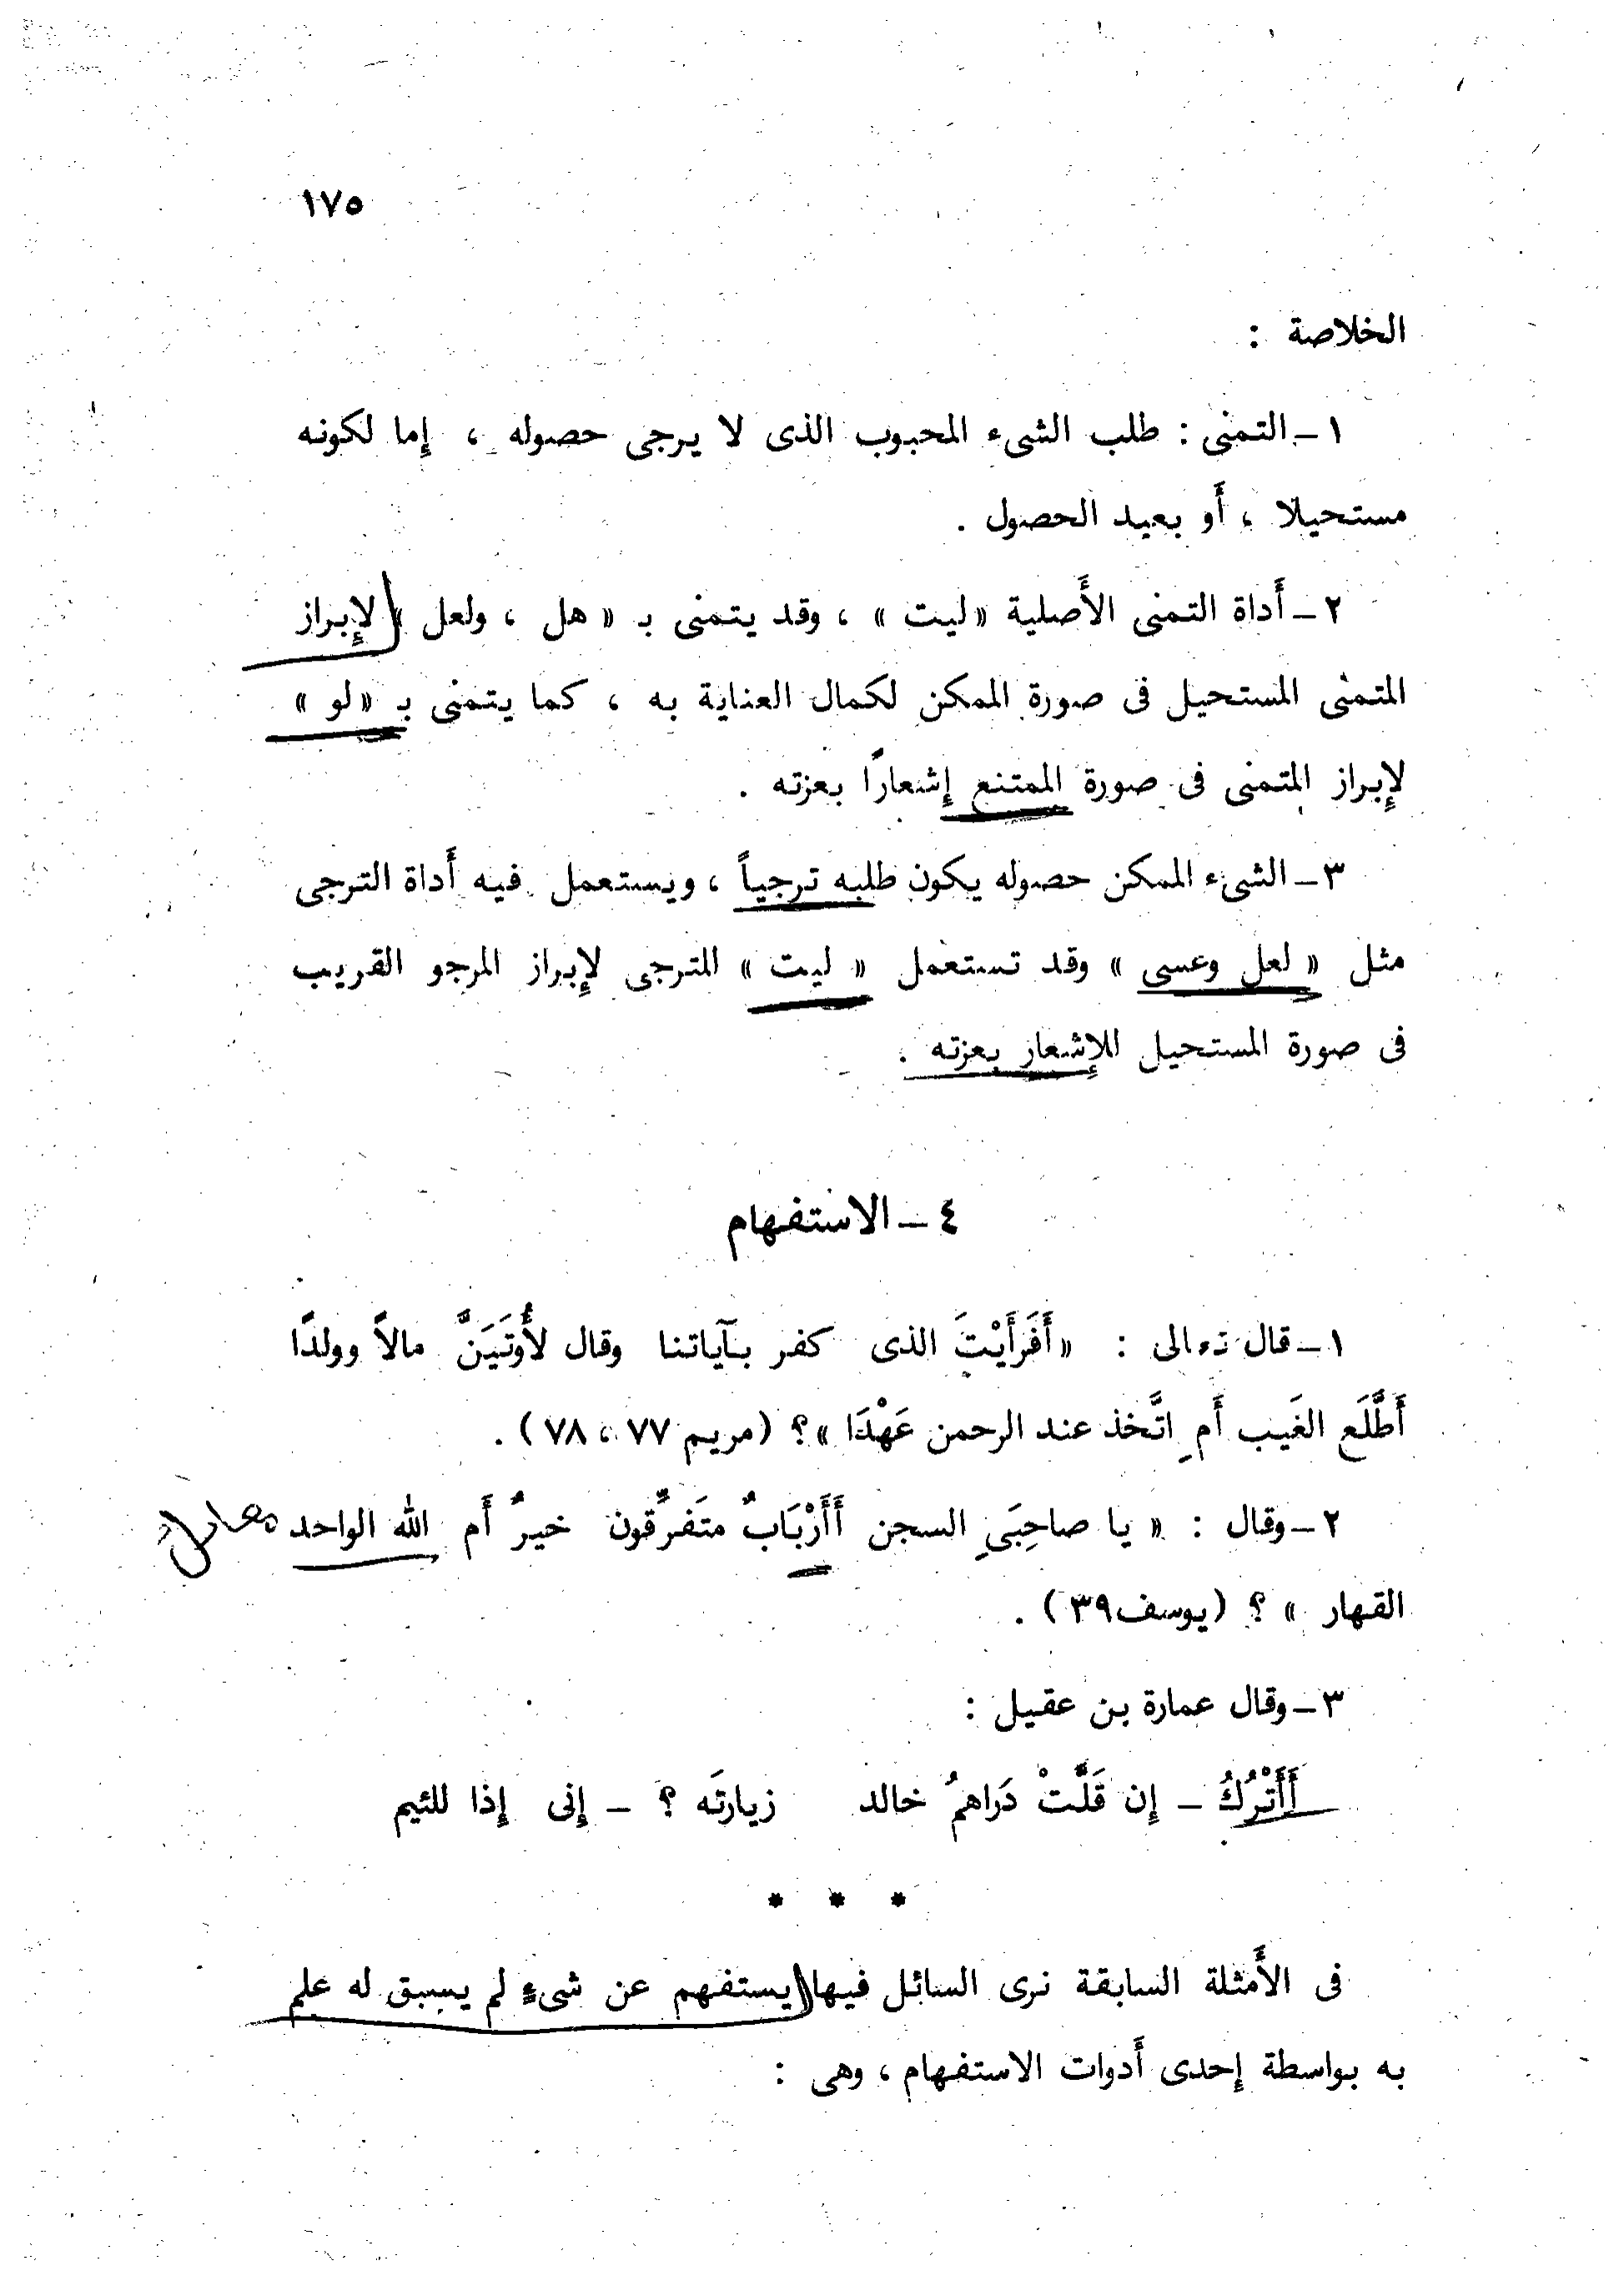 ١٧٥
الخلاصة :
١ – التمنى : طلب الشىء المحبوب الذى لا يرجى حصوله ، إما لكونه
مستحيلا ، أو بعيد الحصول .
٢ – أَداة التمنى الأَصلية «ليت» ، وقد يتمنى بـ «هل ، ولعل» لإِبراز
المتمنى المستحيل فى صورة الممكن لكمال العناية به ، كما يتمنى بـ «لو»
لإِبراز المتمنى فى صورة الممتنع إِشعارًا بعزته .
٣ – الشىء الممكن حصوله يكون طلبه ترجياً ، ويستعمل فيه أَداة الترجى
مثل «لعل وعسى» وقد تستعمل «ليت» للترجى لإِبراز المرجو القريب
فى صورة المستحيل للإِشعار بعزته .
٤ – الاستفهام
١ – قال تعالى : «أَفَرأَيْتَ الذى كفر بآياتنا وقال لأُوتَيَنَّ مالاً وولدًا
أَطَّلَع الغَيب أَمِ اتَّخذ عند الرحمن عَهْدًا» ؟ (مريم ٧٧ ، ٧٨) .
٢ – وقال : «يا صاحِبَيِ السجن أَأَرْبَابٌ متَفرِّقون خيرٌ أَم الله الواحد
القهار» ؟ (يوسف ٣٩) .
٣ – وقال عمارة بن عقيل :
أَأَتْرُكُ – إِن قَلَّتْ دَراهمُ خالد زيارتَه ؟ – إِنى إِذا للئيم
* * *
فى الأَمثلة السابقة نرى السائل فيها يستفهم عن شىءٍ لم يسبق له علم
به بواسطة إِحدى أَدوات الاستفهام ، وهى :